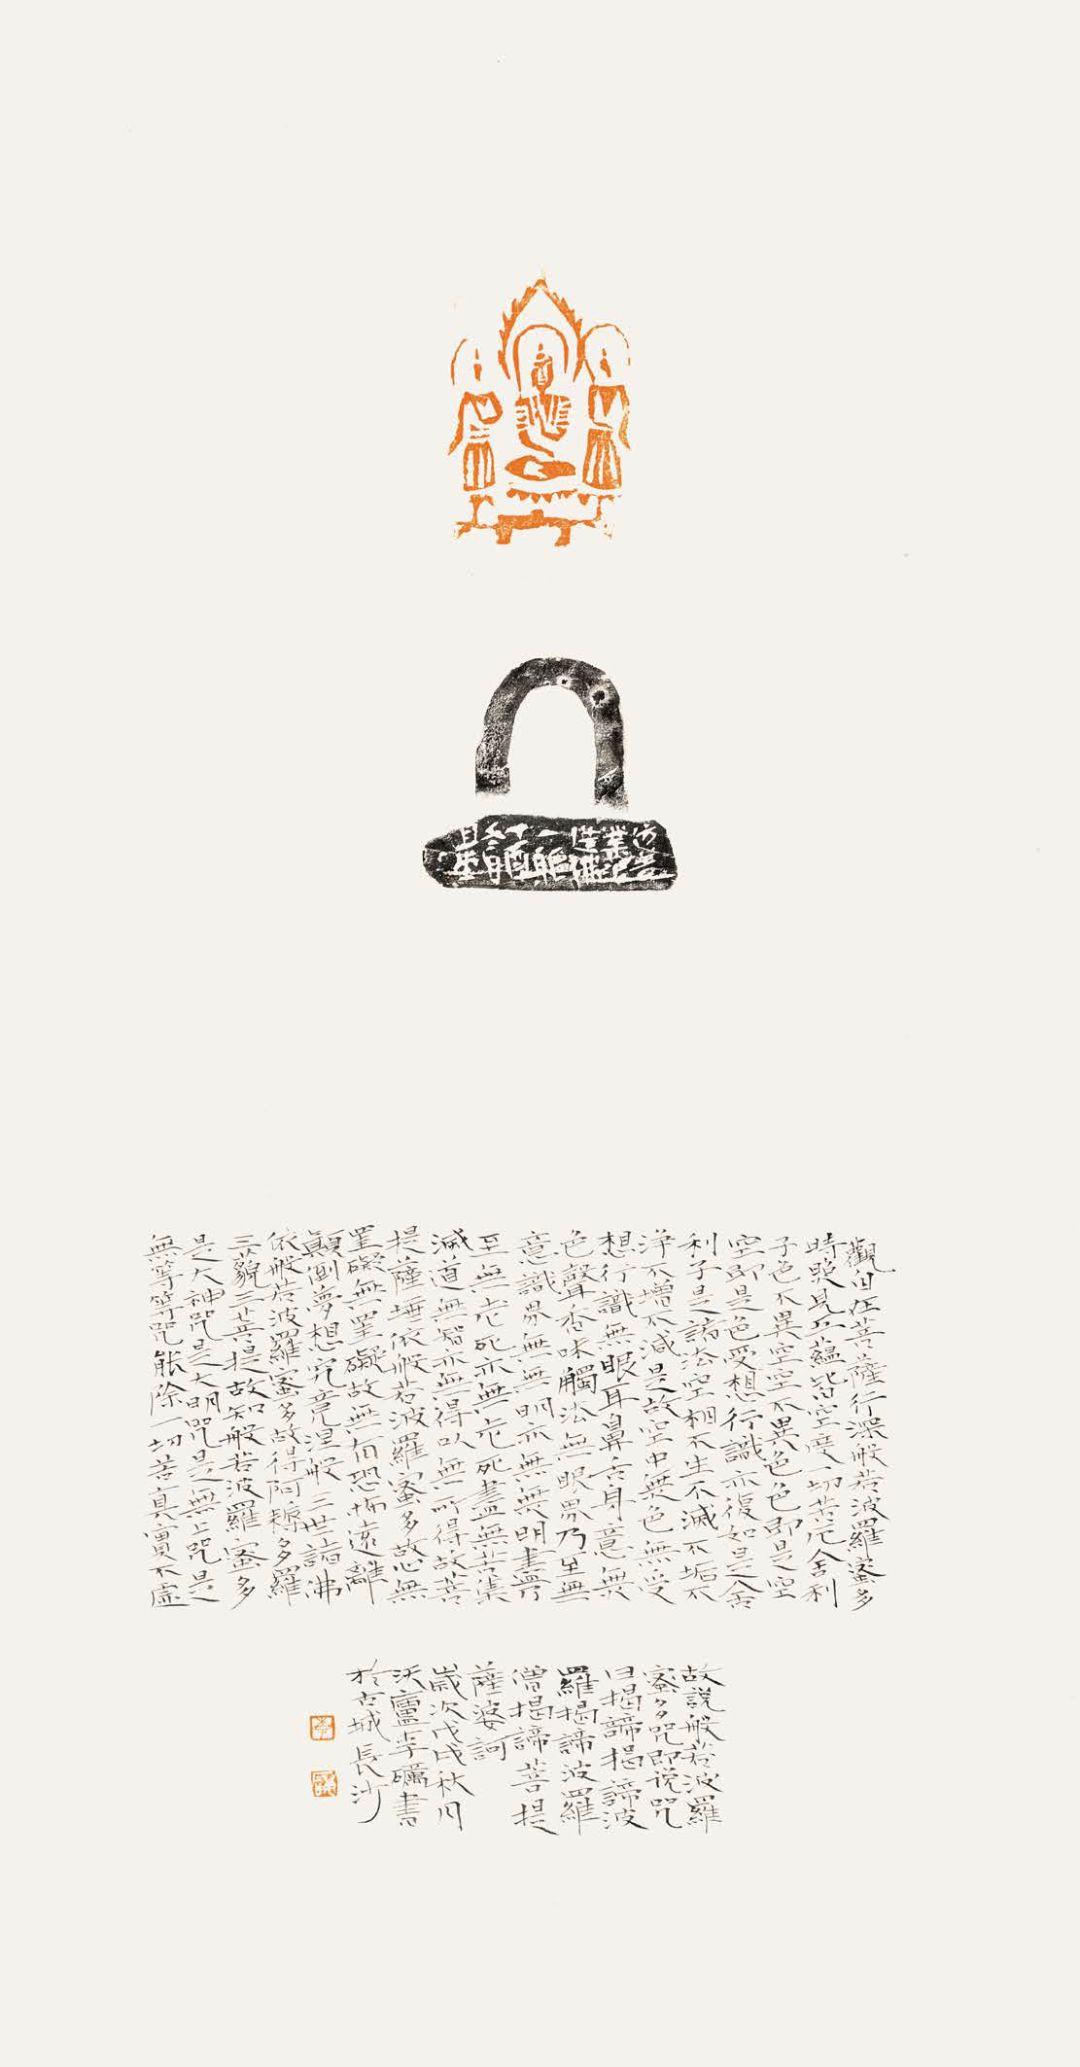 觀自在菩薩行深般若波羅蜜多
時照見五蘊皆空度一切苦厄舍利
子色不異空空不異色色即是空
空即是色受想行識亦復如是舍
利子是諸法空相不生不滅不垢不
淨不增不減是故空中無色無受
想行識無眼耳鼻舌身意無
色聲香味觸法無眼界乃至無
意識界無無明亦無無明盡乃
至無老死亦無老死盡無苦集
滅道無智亦無得以無所得故菩
提薩埵依般若波羅蜜多故心無
罣礙無罣礙故無有恐怖遠離
顛倒夢想究竟涅般三世諸佛
依般若波羅蜜多故得阿耨多羅
三藐三菩提故知般若波羅蜜多
是大神咒是大明咒是無上咒是
無等等咒能除一切苦真實不虛
故說般若波羅
蜜多咒即说咒
曰揭諦揭諦波
羅揭諦波羅
僧揭諦菩提
薩婆訶
歲次戊戌秋月
沃廬李礪書
於古城長沙